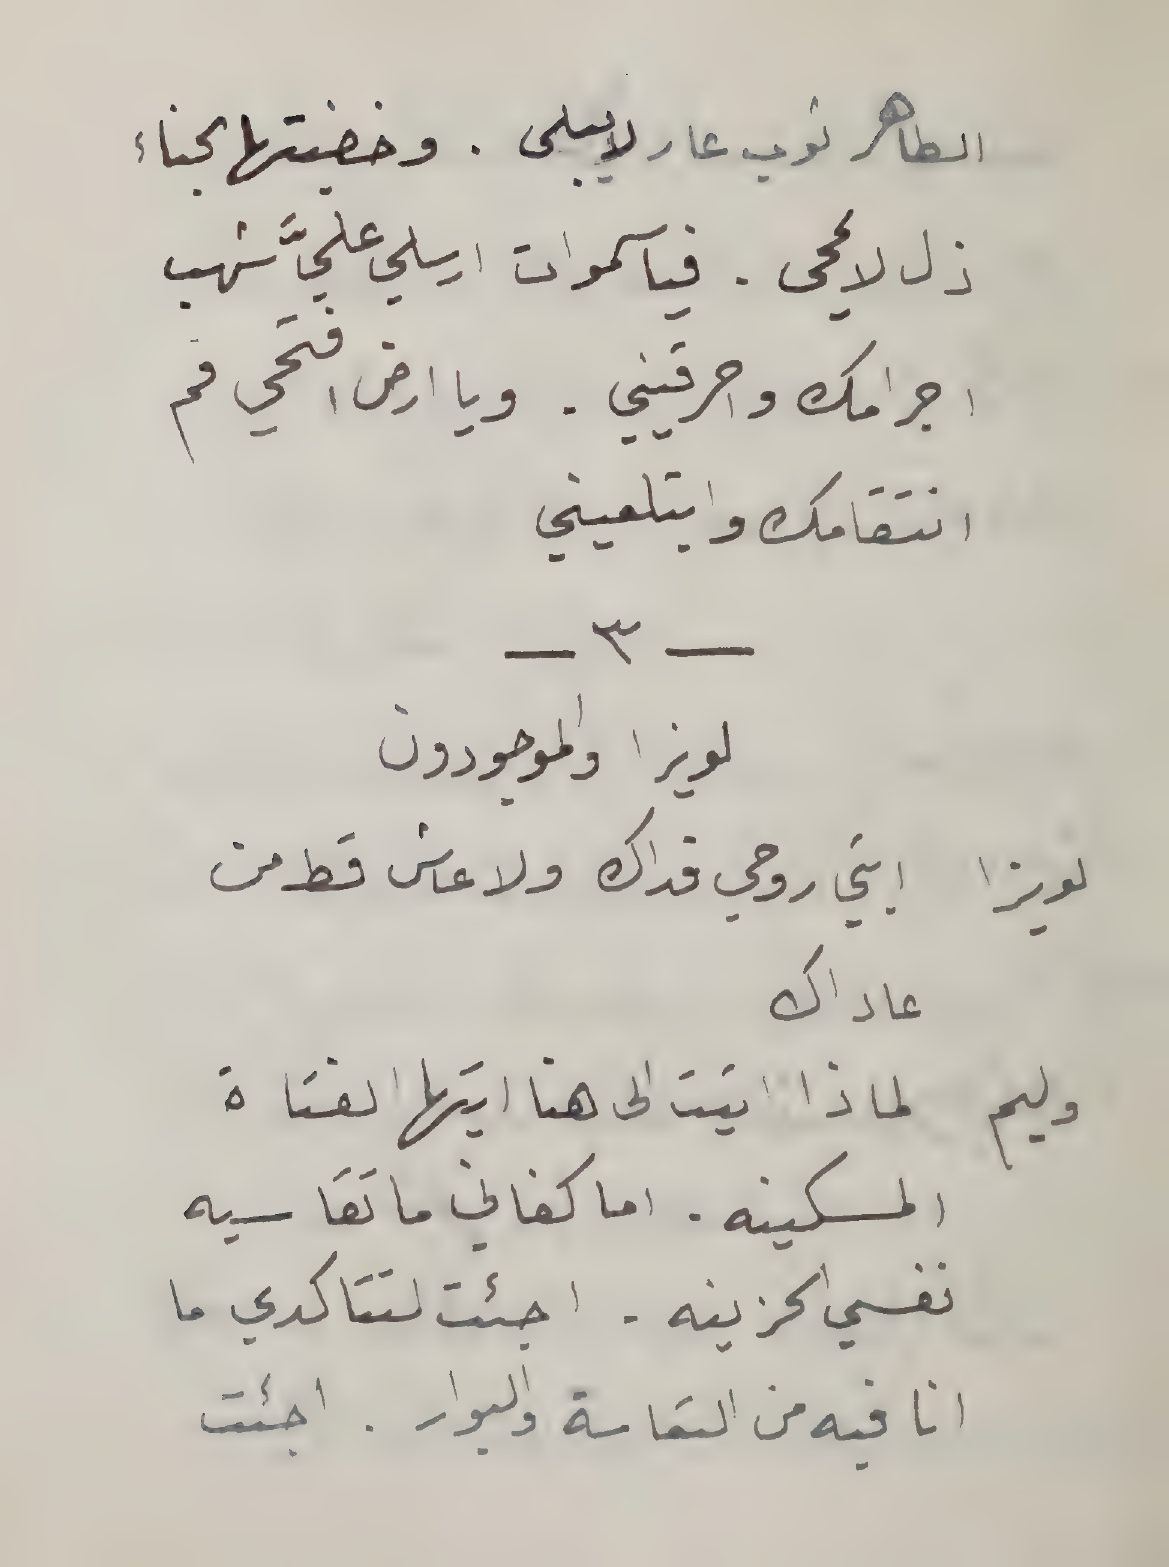 الطاهر ثوب عار لا يبلى . وخضبتها بحناء
ذل لا يمحى . فيا سموات ارسلي عليَّ شهب
اجرامك واحرقيني . ويا ارض افتحي فم
انتقامك وابتلعيني
— ٣ —
لويزا والموجودون
لويزا ابتي روحي فداك ولا عاش قط من
عاداك
وليم لماذا اتيت الى هنا ايتها الفتاة
المسكينه . اما كفاني ما تقاسيه
نفسي الحزينه . اجئت لتتاكدي ما
انا فيه من التعاسة والبوار . اجئت